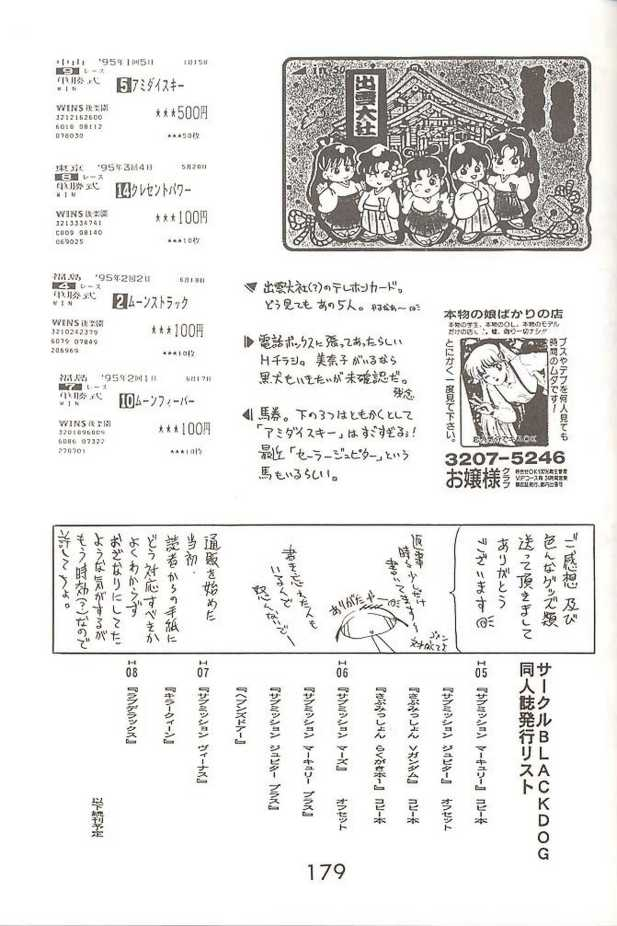 中山 '95年1回5日 1月15日
9 レース
単勝式 5 アミダイスキー
WIN
WINS後楽園 ★★★500円
3212162600
6018 08112
078030 ★★★50枚
東京 '95年3回4日 5月28日
8 レース
単勝式 14 クレセントパワー
WIN
WINS後楽園 ★★★100円
3213334741
C809 08140
069025 ★★★10枚
福島 '95年2回2日 6月18日
4 レース
単勝式 2 ムーンストラック
WIN
WINS後楽園 ★★★100円
3210242379
6079 07849
206969 ★★★10枚
福島 '95年2回1日 6月17日
7 レース
単勝式 10 ムーンフィーバー
WIN
WINS後楽園 ★★★100円
3201096009
6086 07322
270701 ★★★10枚
出雲大社
50
出雲大社(?)のテレホンカード。
どう見てもあの5人。
電話ボックスに張ってあったらしい
Hチラシ。美奈子がいるなら
黒犬もいきたいが未確認だ。
残念
馬券。下の3つはともかくとして
「アミダイスキー」はすごすぎる!
最近「セーラージュピター」という
馬もいるらしい。
本物の娘ばかりの店
本物の学生、本物のOL、本物のモデル
だけの店
ブスやデブを何人見ても
時間のムダです!
とにかく一度見て下さい。
3207-5246
お嬢様クラブ
ご感想 及び
色んなグッズ類
送って頂きまして
ありがとう
ございます
返事
時々少しだけ
書いてきます〜
ゴメン
ありがたや
書き忘れた人も
いるんで
怒んないで〜
通販を始めた
当初、
読者からの手紙に
どう対応すべきか
よくわからず
おざなりにしてた
ような気がするが
もう時効(?)なので
許してちょ。
サークルBLACKDOG
同人誌発行リスト
H05 『サブミッション マーキュリー』 コピー本
『サブミッション ジュピター』 オフセット
『さぶみっしょん Vガンダム』 コピー本
『さぶみっしょん らくがきホー』 コピー本
H06 『サブミッション マーズ』 オフセット
『サブミッション マーキュリー プラス』
『サブミッション ジュピター プラス』
『ヘブンズドアー』
H07 『サブミッション ヴィーナス』
『キラークィーン』
H08 『ラブデラックス』
以下続刊予定
179